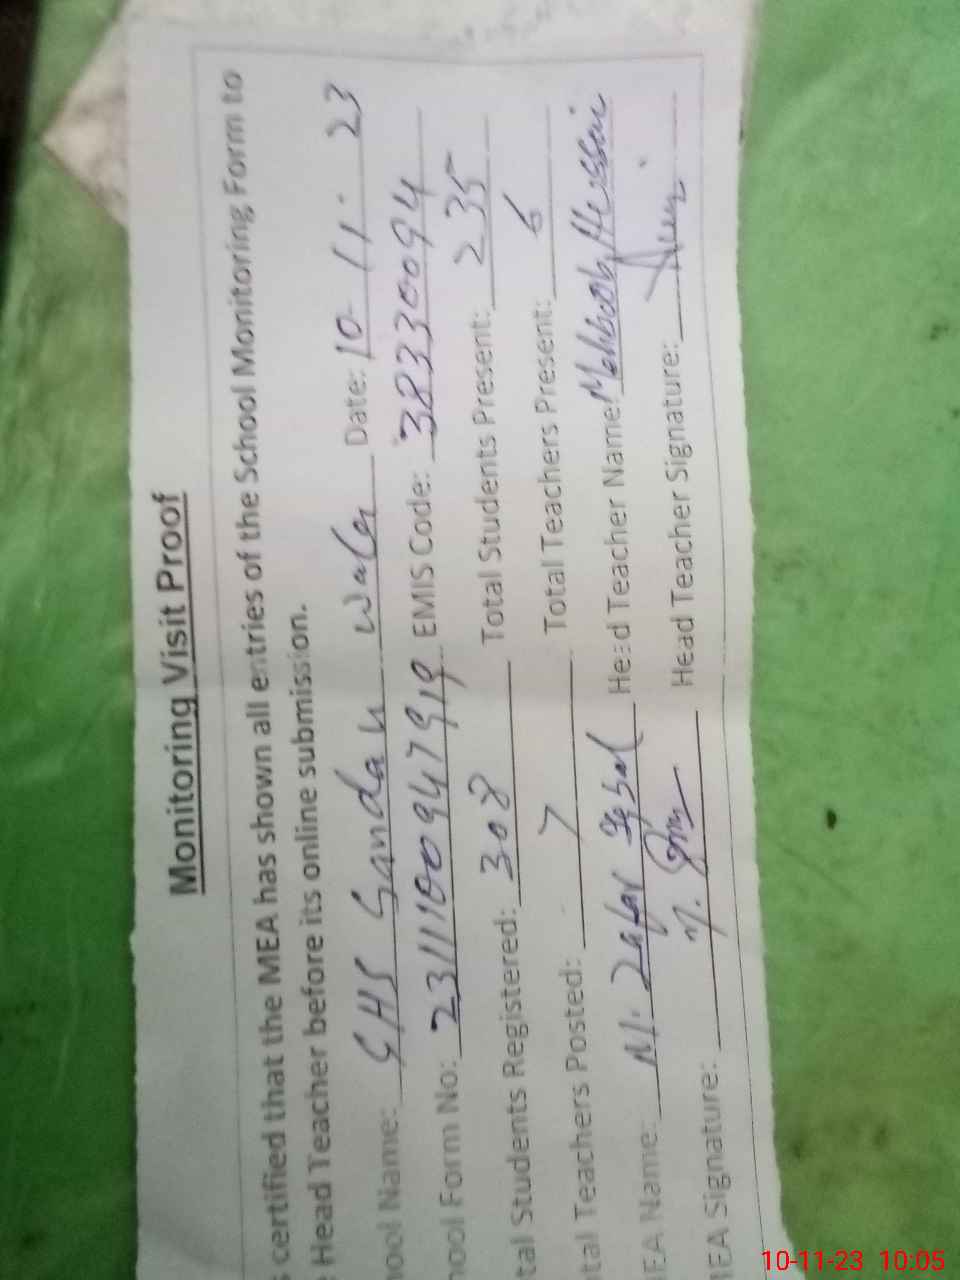 Monitoring Visit Proof
certified that the MEA has shown all entries of the School Monitoring Form to
Head Teacher before its online submission.
hool Name: GHS Sandah Date: 10-11-23
hool Form No: EMIS Code: 38330094
tal Students Registered: 308 Total Students Present: 235
tal Teachers Posted: 7 Total Teachers Present: 6
EA Name: M. Zafar Iqbal Head Teacher Name: Mahboob Hussain
EA Signature: Head Teacher Signature:
10-11-23 10:05